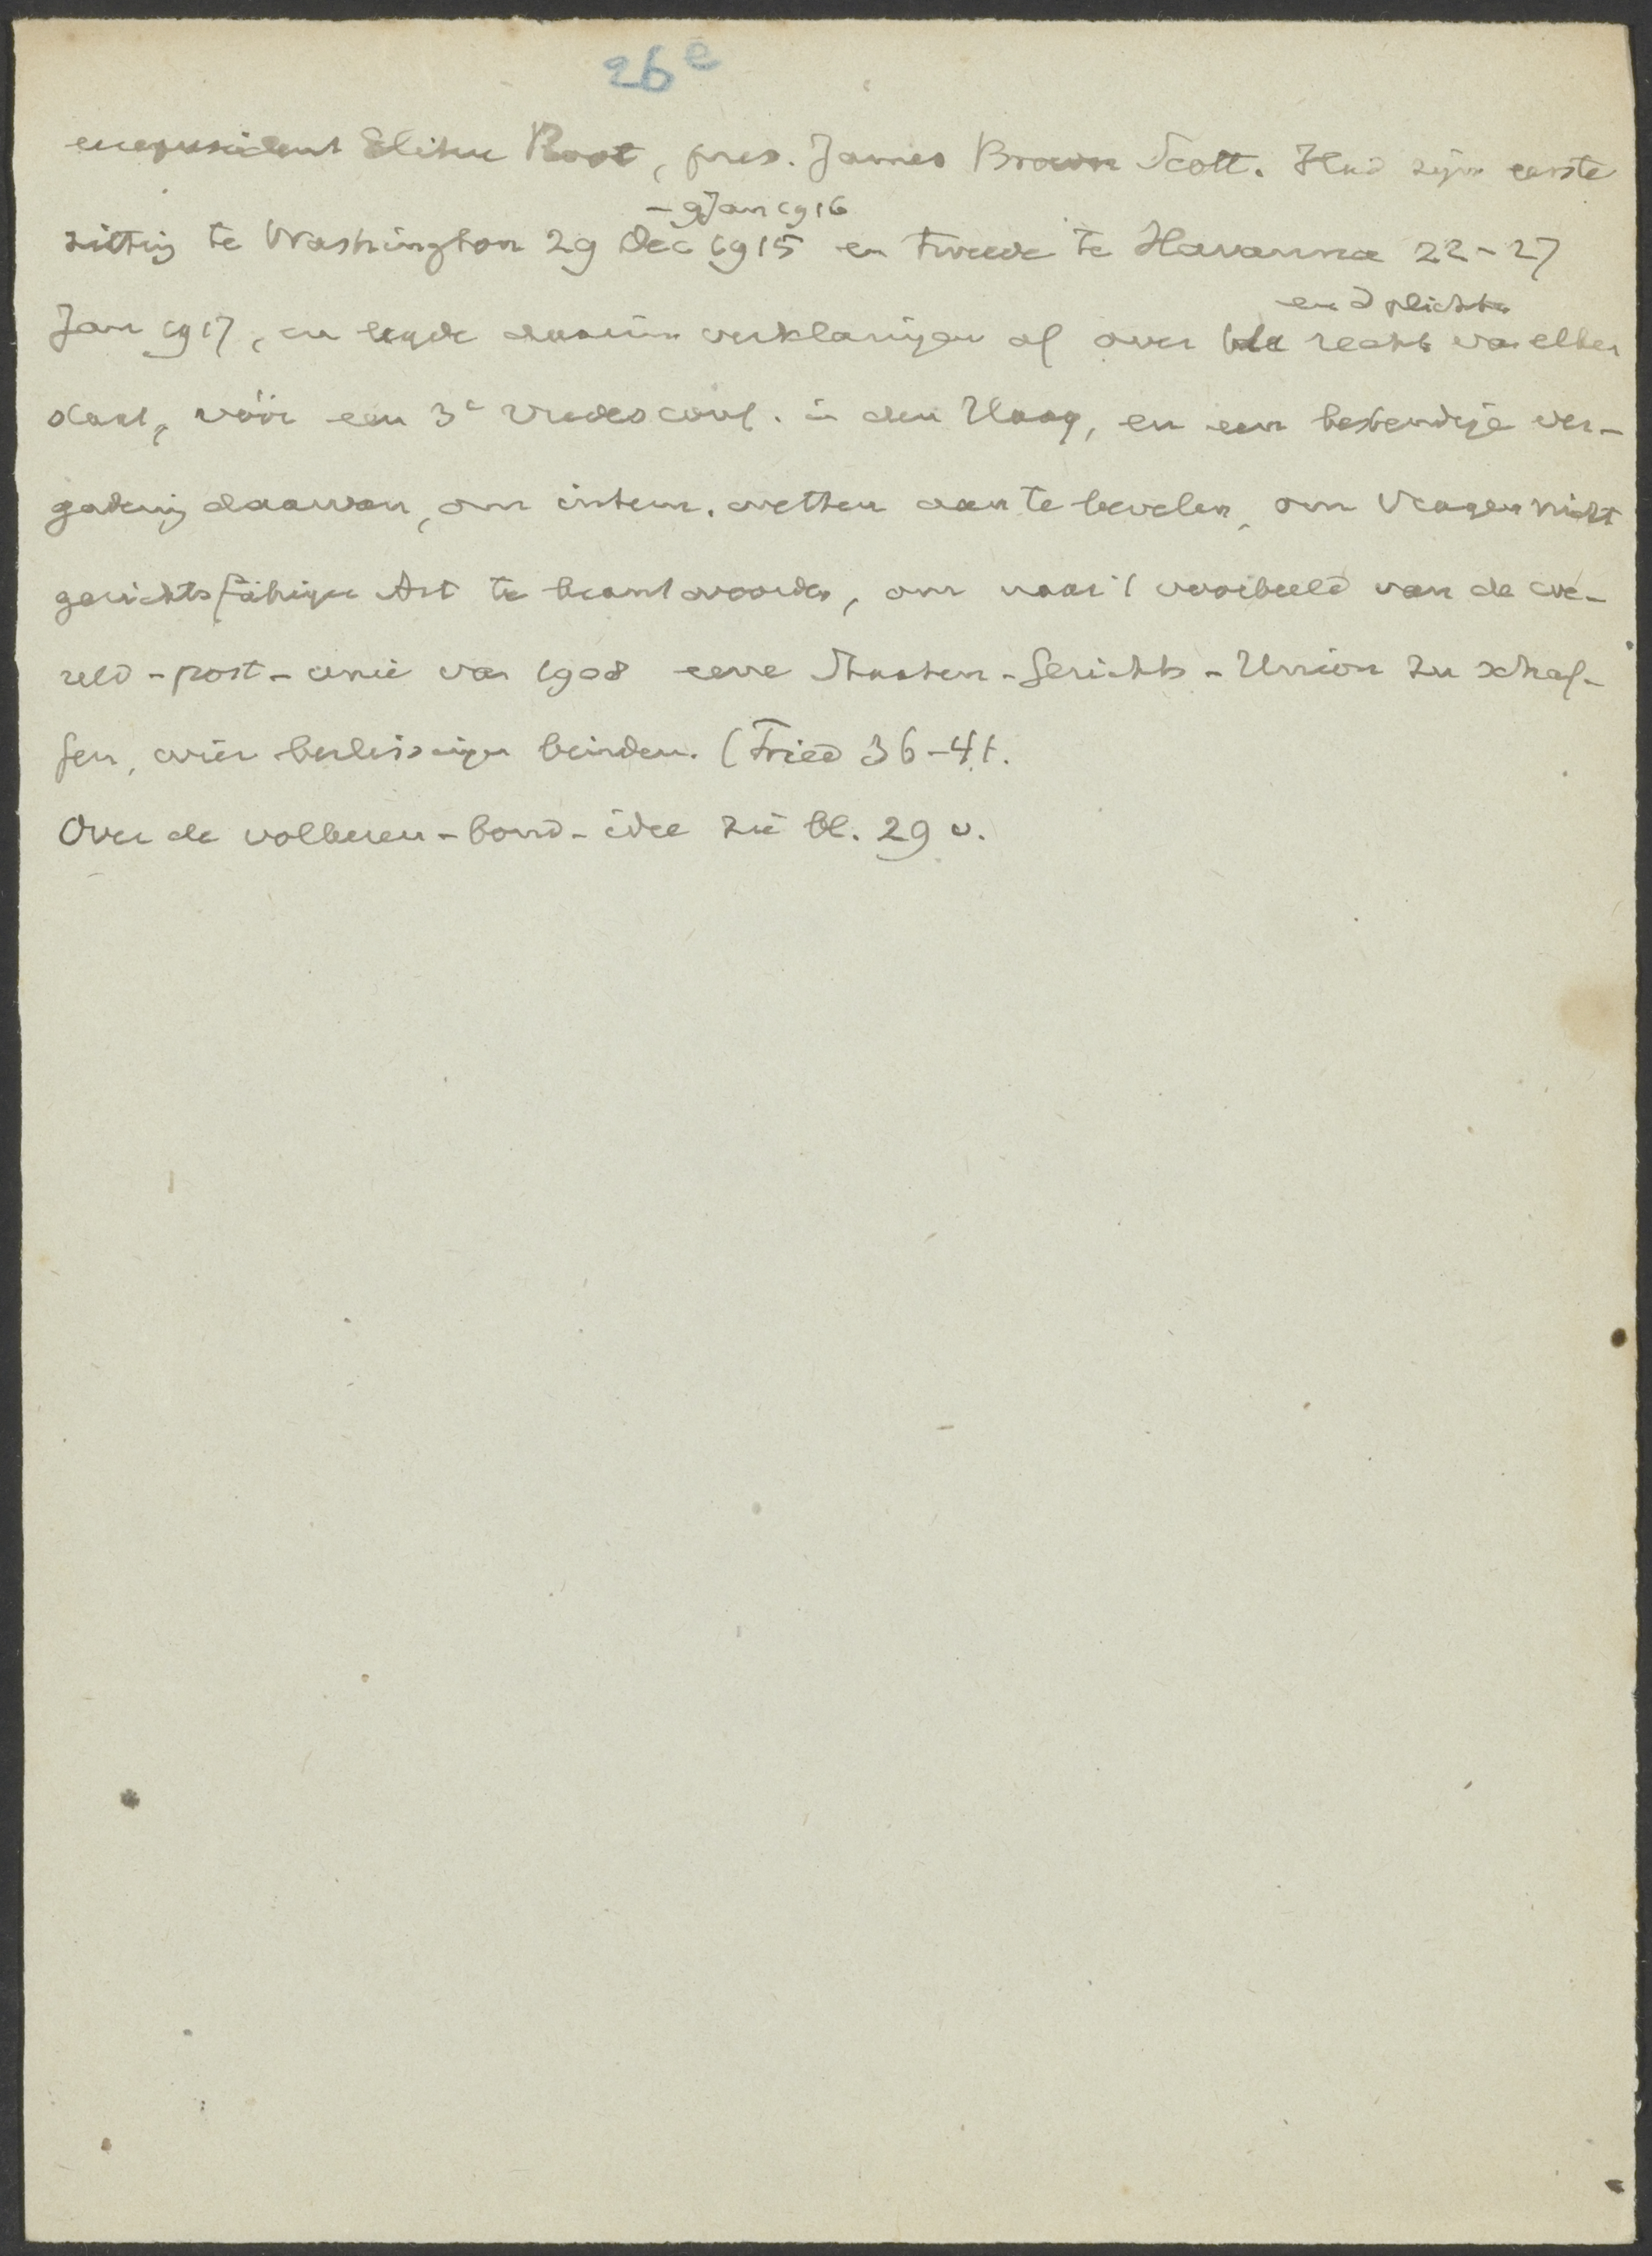 26e
eerepresident Elihu Root, pres. James Brown Scott. Hield zijn eerste
- 9 Jan 1916
zitting te Washington 29 Dec 1915 en tweede te Havanna 22-27
en d plichten
Jan 1917, en legde daarin verklaringen af over de rechten van elken
staat, vóór een 3e vredesconf. in den Haag, en een bestendige ver-
gadering daarvan, om intern. wetten aan te bevelen, om vragen nicht
gerichtsfähiger Art te beantwoorden, om naar 't voorbeeld van de we-
reld-post-unie van 1908 eene Staaten-Gerichts-Union zu schaf-
fen, wier beslissingen binden. (Fried 36-41.
Over de volkeren-bond-idee zie bl. 29 v.